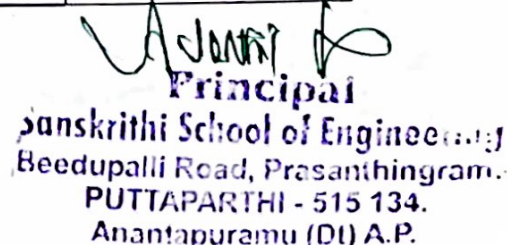 Principal
Sanskrithi School of Engineering
Beedupalli Road, Prasanthingram.
PUTTAPARTHI - 515 134.
Anantapuramu (Dt) A.P.